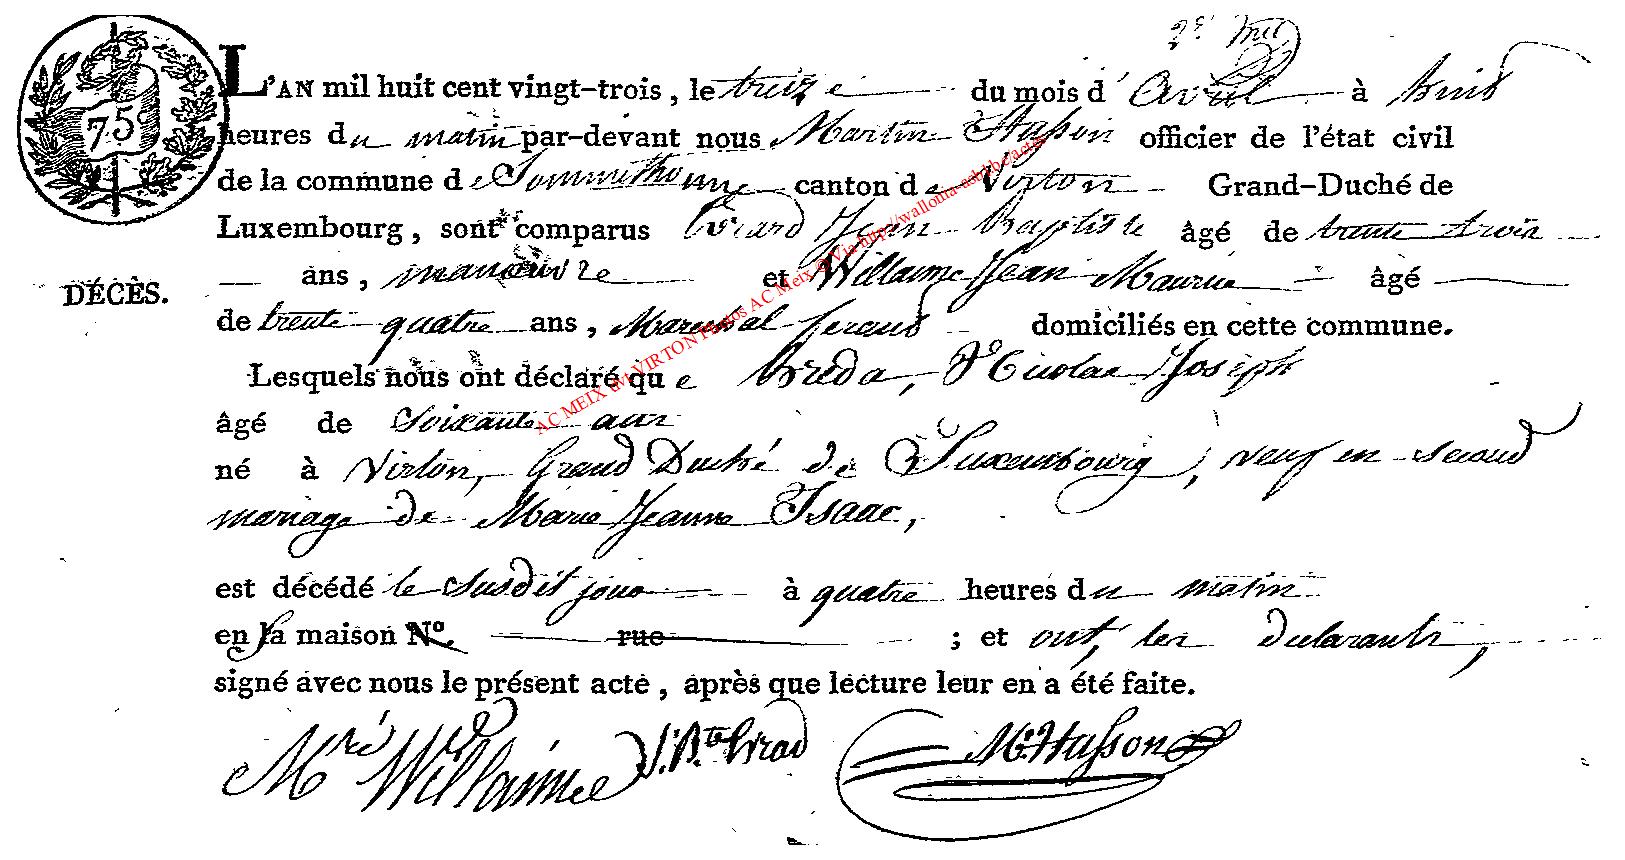 75c
L'AN mil huit cent vingt-trois, le treize du mois d'Avril à huit
heures du matin par-devant nous Martin Husson officier de l'état civil
de la commune de Sommethonne canton de Virton Grand-Duché de
Luxembourg, sont comparus Evrard Jean Baptiste âgé de trente trois
ans, manœuvre et Willaime Jean Maurice âgé
DÉCÈS.
de trente quatre ans, Marechal ferand domiciliés en cette commune.
Lesquels nous ont déclaré que Breda, Nicolas Joseph
âgé de Soixante ans
né à Virton, Grand Duché de Luxembourg, veuf en second
mariage de Marie Jeanne Isaac,
est décédé le susdit jour à quatre heures du matin
en sa maison N°. rue ; et ont, les declarants,
signé avec nous le présent acte, après que lecture leur en a été faite.
Mce Willaime J. Bte Evrad M. Husson
AC MEIX dvt VIRTON Photos AC Meix @ Via http://wallonia-asbl.be/actes